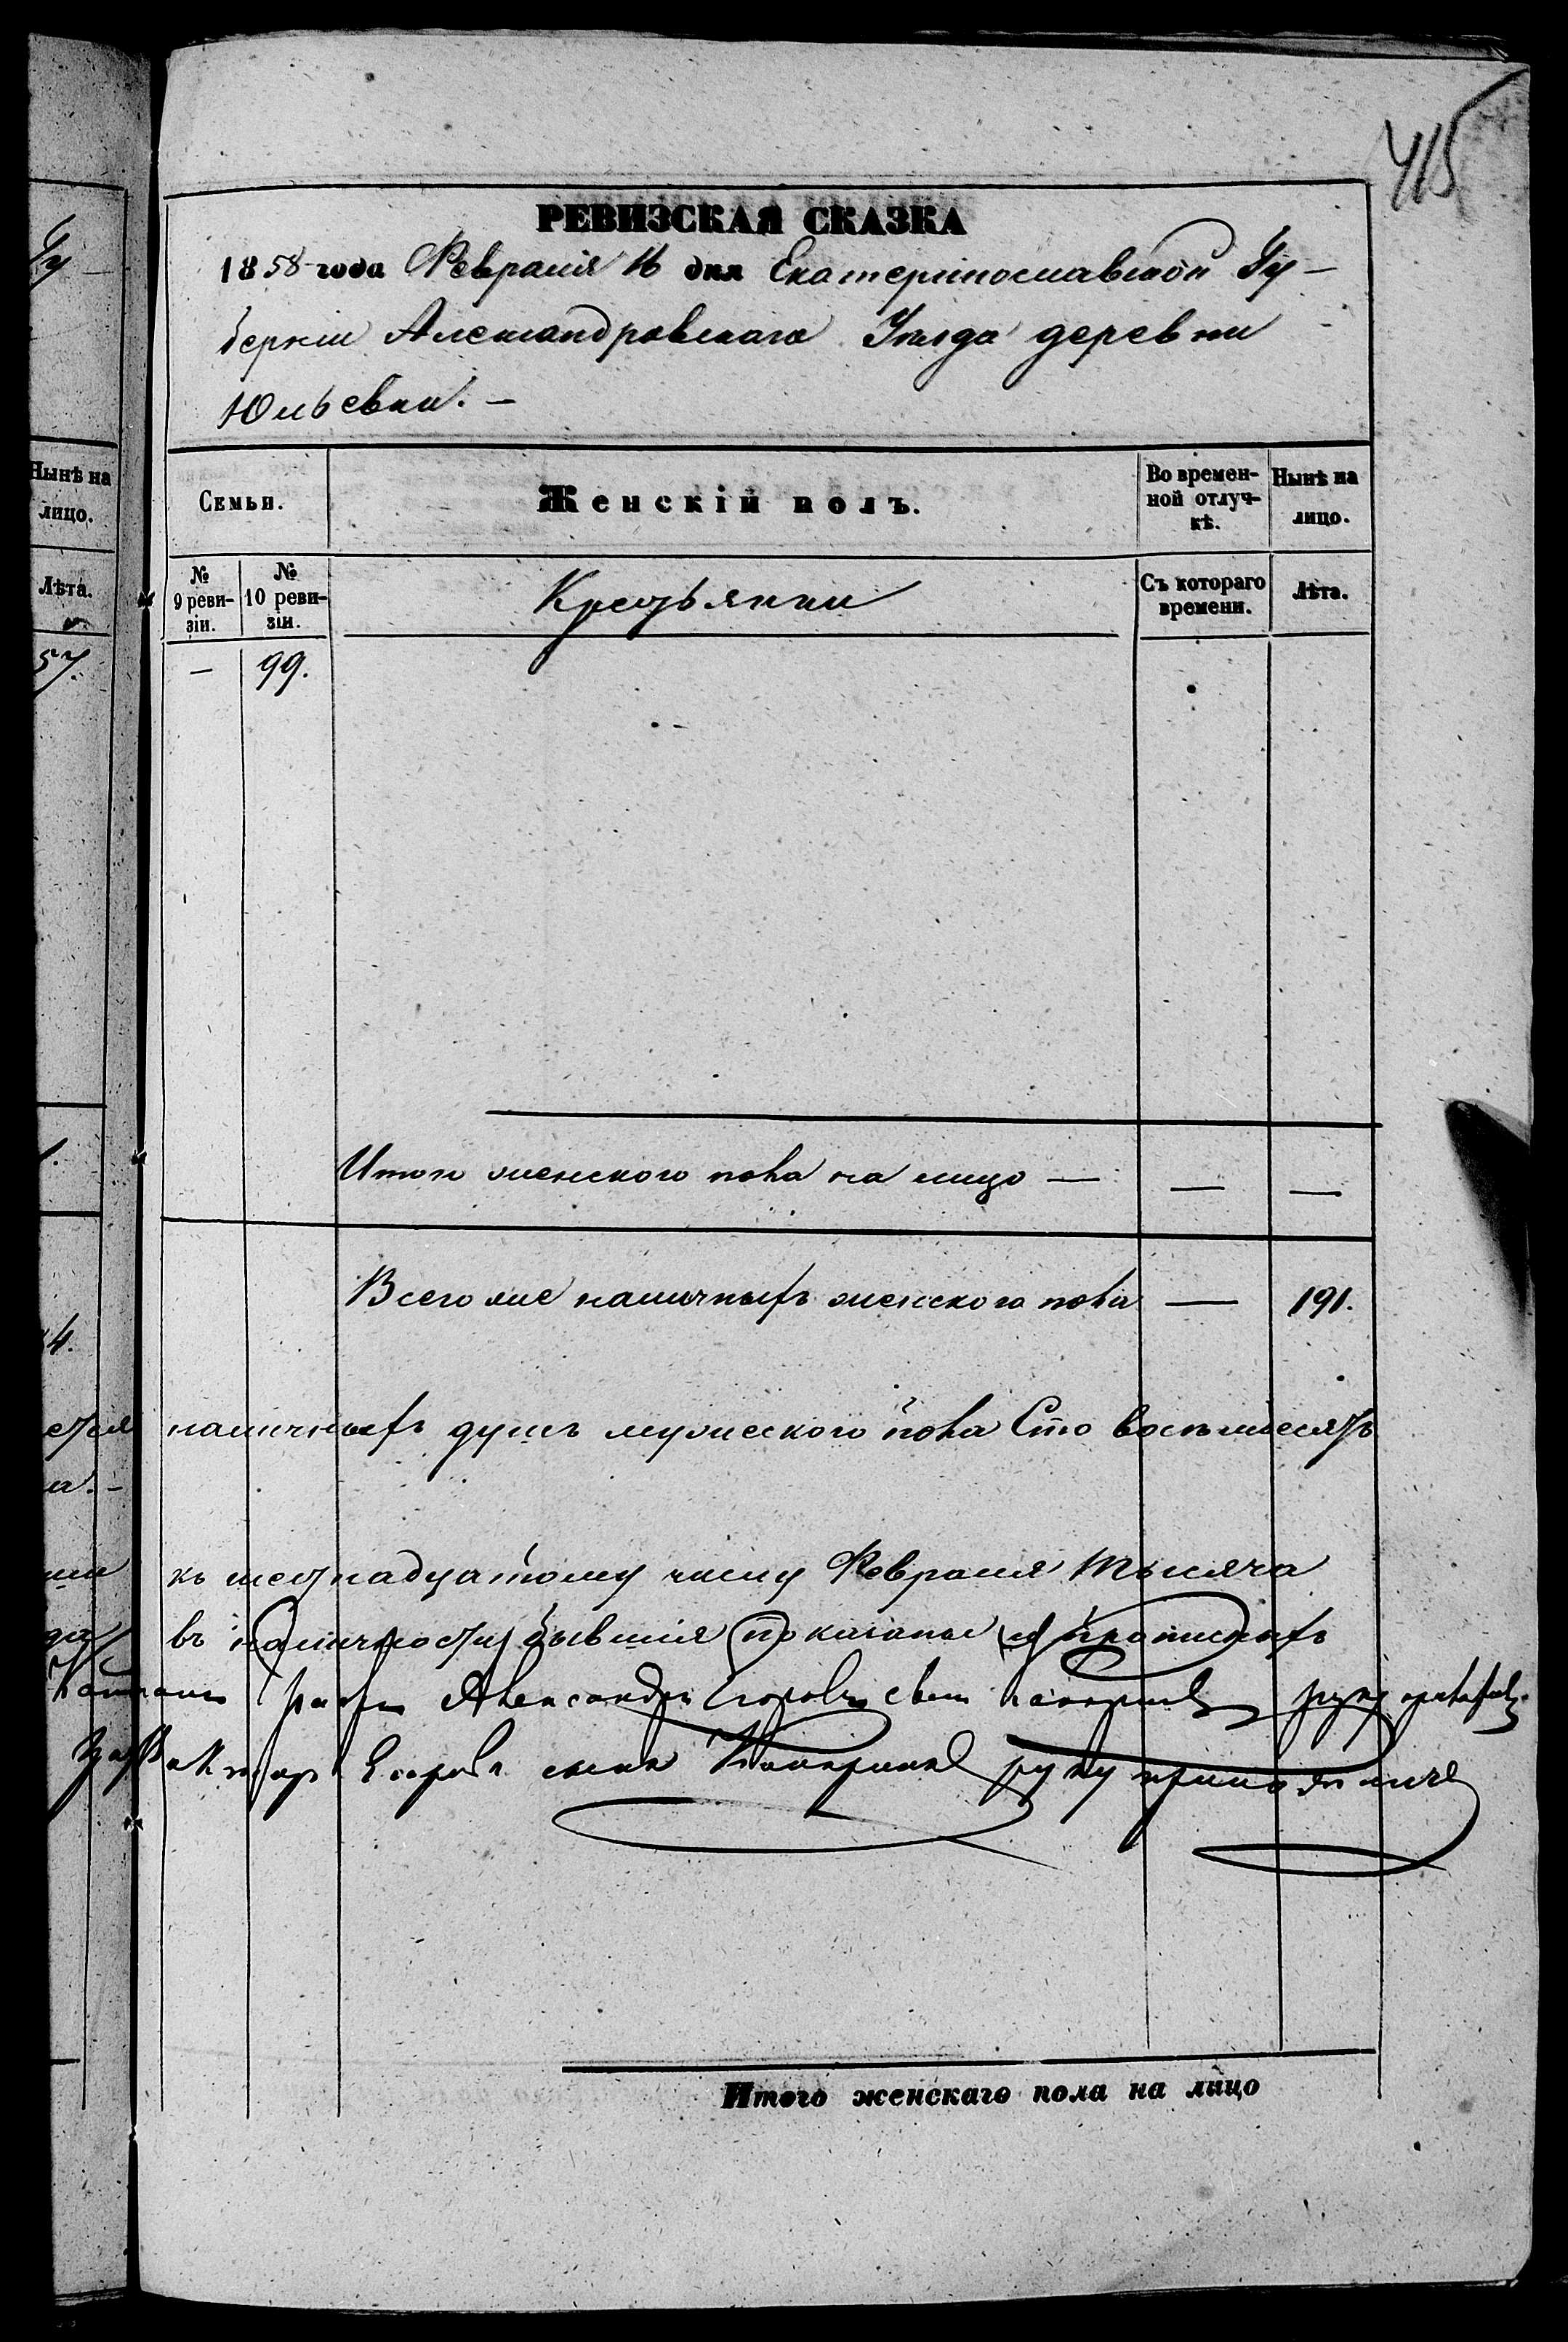 415
РЕВИЗСКАЯ СКАЗКА
1858 года Февраля 16 дня Екатеринославской Гу-
берніи Александровскаго Уѣзда деревни
Юльевки. —
Нынѣ на лицо.
Лѣта.
57.
Семьи.
Женскій полъ.
Во времен-
ной отлуч-
кѣ.
Нынѣ на
лицо.
№
9 реви-
зіи.
№
10 реви-
зіи.
Крестьянки
Съ котораго
времени.
Лѣта.
— 99.
Итого женского пола на лицо — — —
Всего же наличныхъ женского пола — 191.
наличныхъ душъ мужеского пола Сто восемьдесятъ
къ шестнадцатому числу Февраля тысяча
въ наличности бывшія показаны и прописныхъ
Александръ Егоровъ сынъ руку приложилъ
Егоровъ сынъ руку приложилъ
Итого женскаго пола на лицо